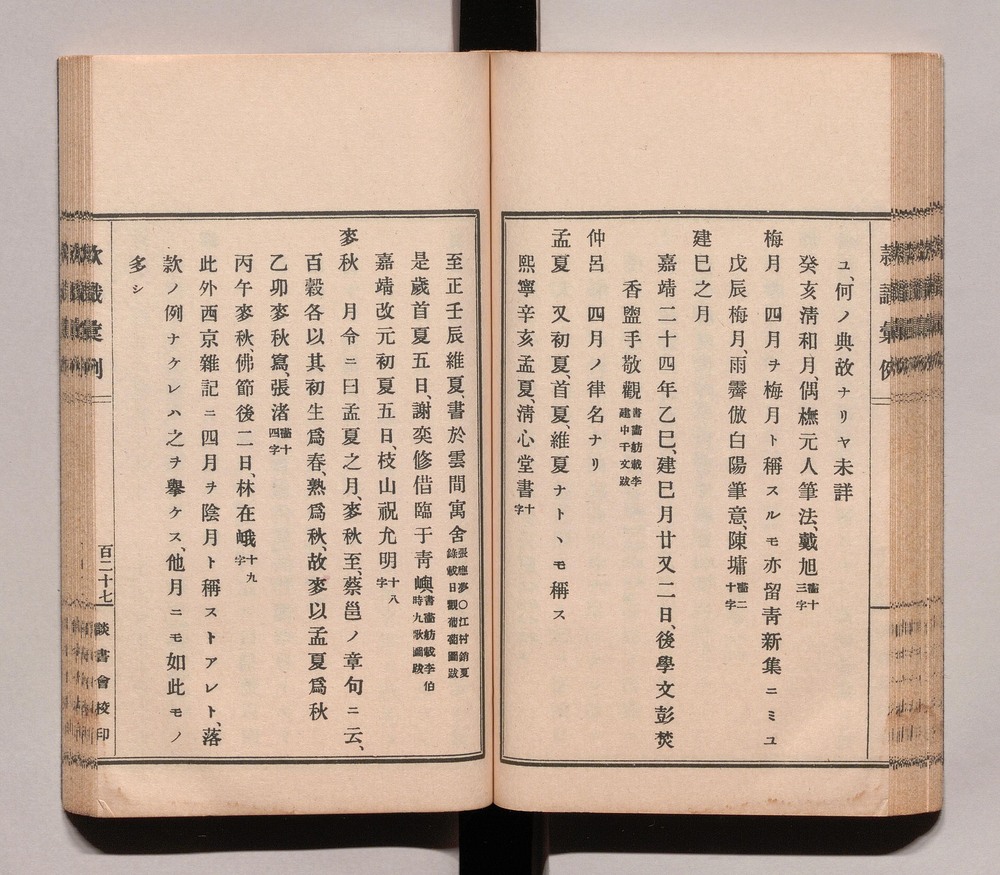 ユ、何ノ典故ナリヤ未詳
癸亥淸和月、偶橅元人筆法、戴旭畵十三字
梅月　四月ヲ梅月ト稱スルモ亦留靑新集ニミユ
戊辰梅月、雨霽倣白陽筆意、陳墉畵二十字
建巳之月
嘉靖二十四年乙巳、建巳月廿又二日、後學文彭焚
香盥手敬觀書畵舫載李建中千文跋
仲呂　四月ノ律名ナリ
孟夏　又初夏、首夏、維夏ナト丶モ稱ス
熙寧辛亥孟夏、淸心堂書十字
至正壬辰維夏、書於雲間寓舍張應夢○江村銷夏錄載日觀葡萄圖跋
是歲首夏五日、謝奕修借臨于靑嶼書畵舫載李伯時九歌圖跋
嘉靖改元初夏五日、枝山祝允明十八字
麥秋　月令ニ曰孟夏之月、麥秋至、蔡邕ノ章句ニ云、
百穀各以其初生爲春、熟爲秋、故麥以孟夏爲秋
乙卯麥秋寫、張渚畵十四字
丙午麥秋佛節後二日、林在峨十九字
此外西京雜記ニ四月ヲ陰月ト稱ストアレト、落
款ノ例ナケレハ之ヲ擧ケス、他月ニモ如此モノ
多シ
款識彙例
百二十七
談書會校印